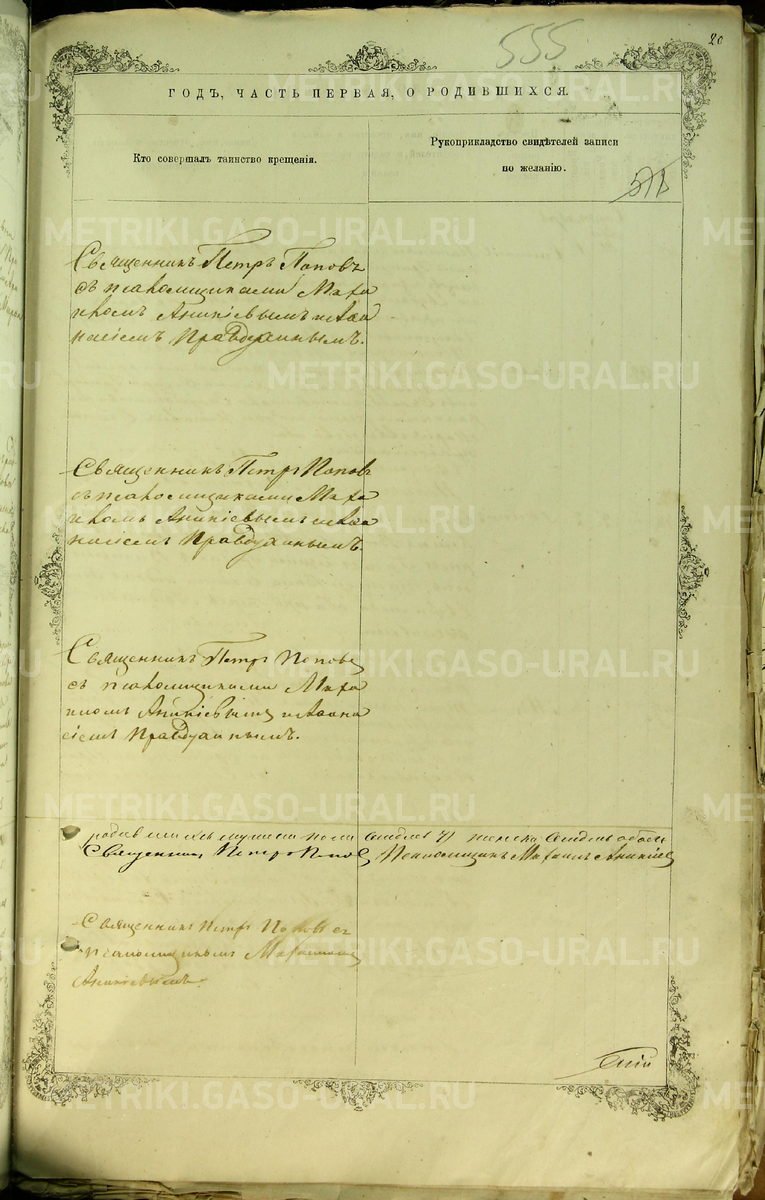 20
555
ГОДЪ, ЧАСТЬ ПЕРВАЯ, О РОДИВШИХСЯ.
Кто совершалъ таинство крещенія.
Рукоприкладство свидѣтелей записи
по желанію.
Священникъ Петръ Поповъ
съ псаломщиками Миха
иломъ Аникіевымъ и Аѳа
насіемъ Правдинымъ.
Священникъ Петръ Поповъ
съ псаломщиками Миха
иломъ Аникіевымъ и Аѳа
насіемъ
Священникъ Петръ Поповъ
съ псаломщиками Миха
иломъ Аникіевымъ и Аѳана
сіемъ
Священникъ Петръ Поповъ Псаломщикъ Михаилъ Аникіевъ
Священникъ Петръ Поповъ съ
псаломщикомъ Михаиломъ
Аникіевымъ.
METRIKI.GASO-URAL.RU